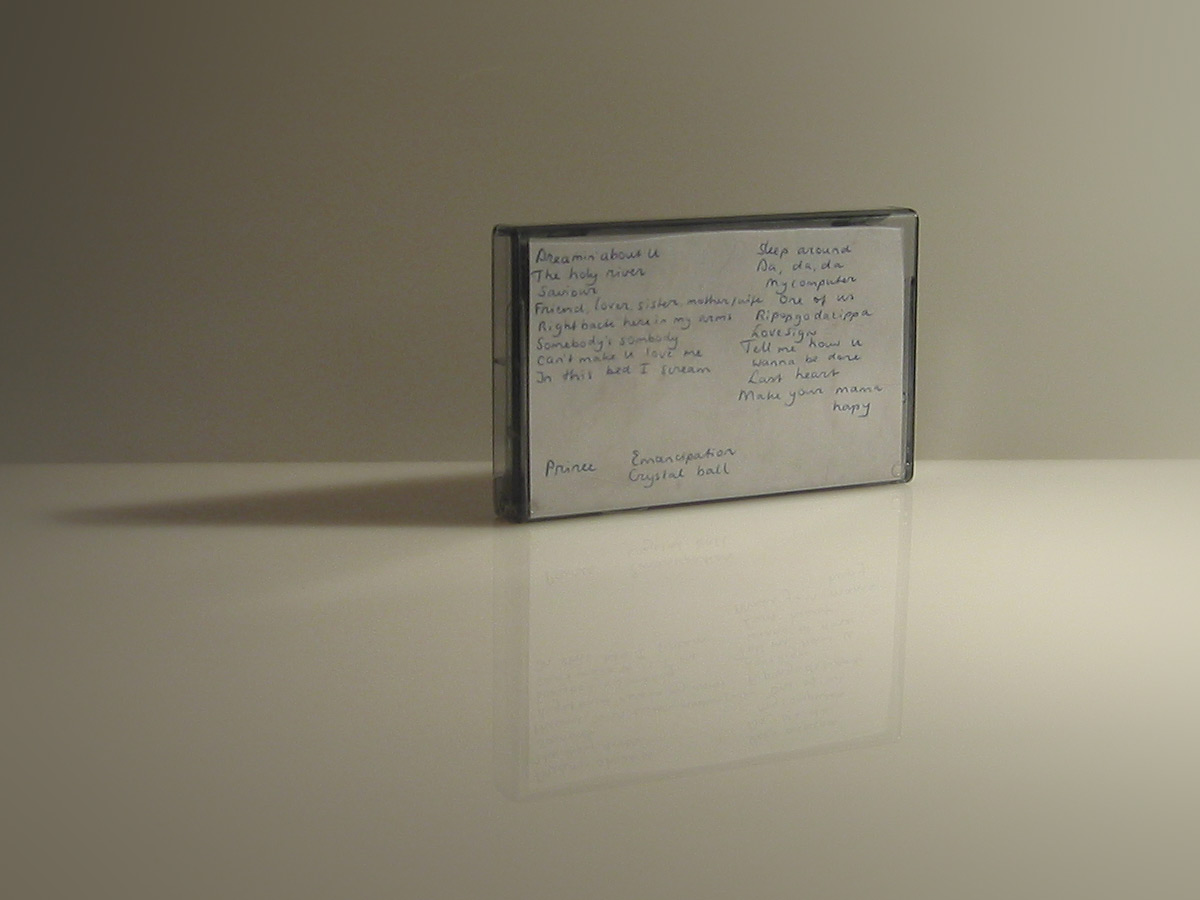 Dreamin' about U
The holy river
Saviour
Friend, lover, sister, mother/wife
Right back here in my arms
Somebody's sombody
Can't make U love me
In this bed I scream
Sleep around
Da, da, da
My computer
One of us
Ripopgodazippa
Lovesign
Tell me how U
wanna be done
Last heart
Make your mama
hapy
Prince
Emancipation
Crystal ball